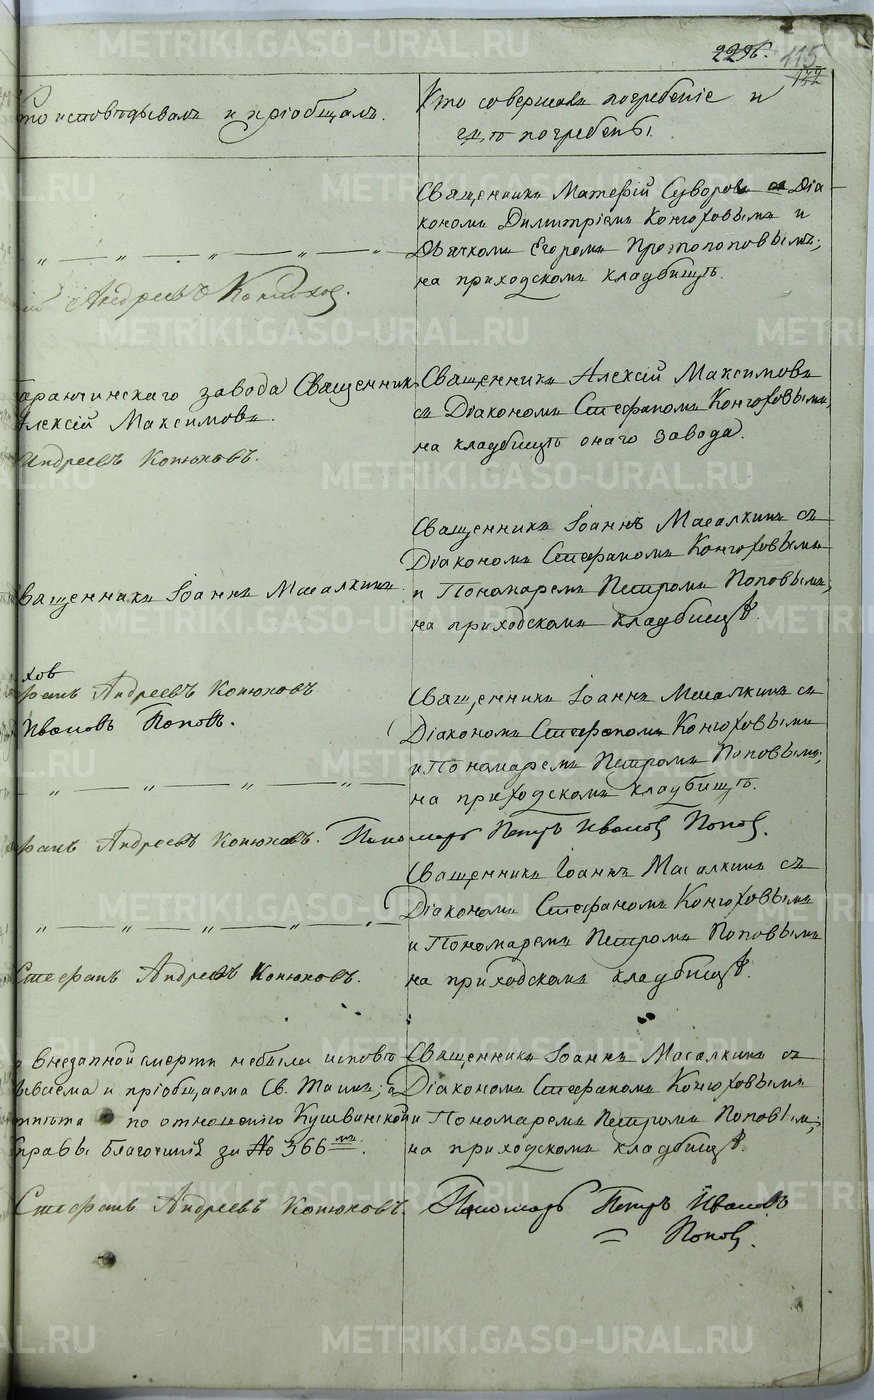 229б. 115
122
Кто исповѣдывалъ и пріобщалъ.
Кто совершалъ погребеніе и
гдѣ погребены.
Священникъ Матѳій Суворовъ съ Діа-
кономъ Димитріемъ Конюховымъ и
Дьячкомъ Егоромъ Протопоповымъ;
на приходскомъ кладбищѣ.
Андреевъ Конюхов.
Баранчинскаго завода Священникъ
Алексій Максимовъ.
Андреевъ Конюховъ.
Священникъ Алексій Максимовъ
съ Діакономъ Стефаномъ Конюховымъ,
на кладбищѣ онаго завода.
Священникъ Іоаннъ Масалкинъ
Священникъ Іоаннъ Масалкинъ съ
Діакономъ Стефаномъ Конюховымъ
и Пономаремъ Петромъ Поповымъ;
на приходскомъ кладбищѣ.
хов
фанъ Андреевъ Конюховъ
Ивановъ Поповъ.
Священникъ Іоаннъ Масалкинъ съ
Діакономъ Стефаномъ Конюховымъ
и Пономаремъ Петромъ Поповымъ;
на приходскомъ кладбищѣ.
фанъ Андреевъ Конюховъ. Пономарь Петръ Иванов Попов.
Священникъ Іоаннъ Масалкинъ съ
Діакономъ Стефаномъ Конюховымъ
и Пономаремъ Петромъ Поповымъ
на приходскомъ кладбищѣ.
Стефанъ Андреевъ Конюховъ.
внезапной смерти небыли исповѣ-
дываема и пріобщаема Св. Таинъ;
по отношенію Кушвинской
Управы Благочинія за № 366мъ.
Священникъ Іоаннъ Масалкинъ съ
Діакономъ Стефаномъ Конюховымъ
и Пономаремъ Петромъ Поповым;
на приходскомъ кладбищѣ.
Стефанъ Андреевъ Конюховъ. Пономарь Петръ Ивановъ
Попов.
METRIKI.GASO-URAL.RU